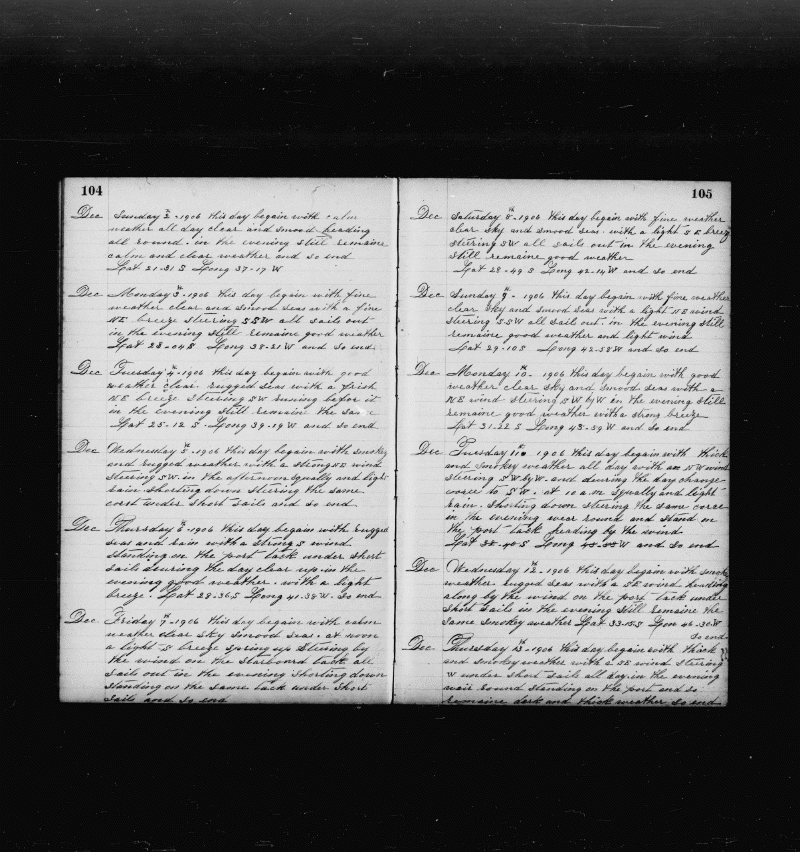 104
Dec Sunday 2th - 1906 this day begain with calm
weather all day clear and smood heading
all round. in the evening still remaine
calm and clear weather and so end
Lat 21-31 S Long 37-17 W
Dec Monday 3th - 1906 this day begain with fine
weather clear and smood seas with a fine
NE breeze steering SSW all sails out
in the evening still remaine good weather
Lat 23-04 S Long 38-21 W and so end
Dec Tuesday 4th - 1906 this day begain with good
weather clear. rugged seas with a frish
NE breeze steering SW runing befor it
in the evening still remain the same
Lat 25-12 S. Long 39-19 W and so end
Dec Wednesday 5th - 1906 this day begain with smokey
and rugged weather with a strong NE wind
steering SW. in the afternoon Squally and light
rain shorting down steering the same
corst under short sails and so end
Dec Thursday 6th - 1906 this day begain with rugged
seas and rain with a strong S wind
standing on the port tack under short
sails deuring the day clear up. in the
evening good weather. with a light
breeze. Lat 28-36 S Long 41-38 W. so end
Dec Friday 7th - 1906 this day begain with calm
weather clear sky smood seas. at noon
a light S breeze spring up steering by
the wind on the starboard tack all
sails out in the evening shorting down
standing on the same tack under short
sails and so end
105
Dec Saturday 8th - 1906 this day begain with fine weather
clear sky and smood seas. with a light SE breez
steering SW all sails out in the evening
still remaine good weather
Lat 28-49 S Long 42-14 W and so end
Dec Sunday 9th - 1906 this day begain with fine weather
clear sky and smood seas with a light NE wind
steering SSW all sail out. in the evening still
remaine good weather and light wind
Lat 29-10 S Long 42-58 W and so end
Dec Monday 10th - 1906 this day begain with good
weather clear sky and smood seas with a
NE wind steering SW by W in the evening still
remaine good weather with a strong breeze
Lat 31-22 S Long 43-59 W and so end
Dec Tuesday 11th 1906 this day begain with thick
and smokey weather all day with an NW wind
steering SW by W. and deuring the day change
corce to SW. at 10 a.m Squally and light
rain. shorting down steering the same corce
in the evening wear round and stand on
the port tack heading by the wind
Lat 32-40 S Long W and so end
Dec Wednesday 12th - 1906 this day begain with smoky
weather rugged seas with a SE wind heading
along by the wind on the port tack under
short sails in the evening still remaine the
same smokey weather Lat 33-15 S Lon 46-30 W
so end
Dec Thursday 13th - 1906 this day begain with thick
and smokey weather with a NE wind steering
W under short sails all day. in the evening
wair round standing on the port and so
remaine dark and thick weather so end